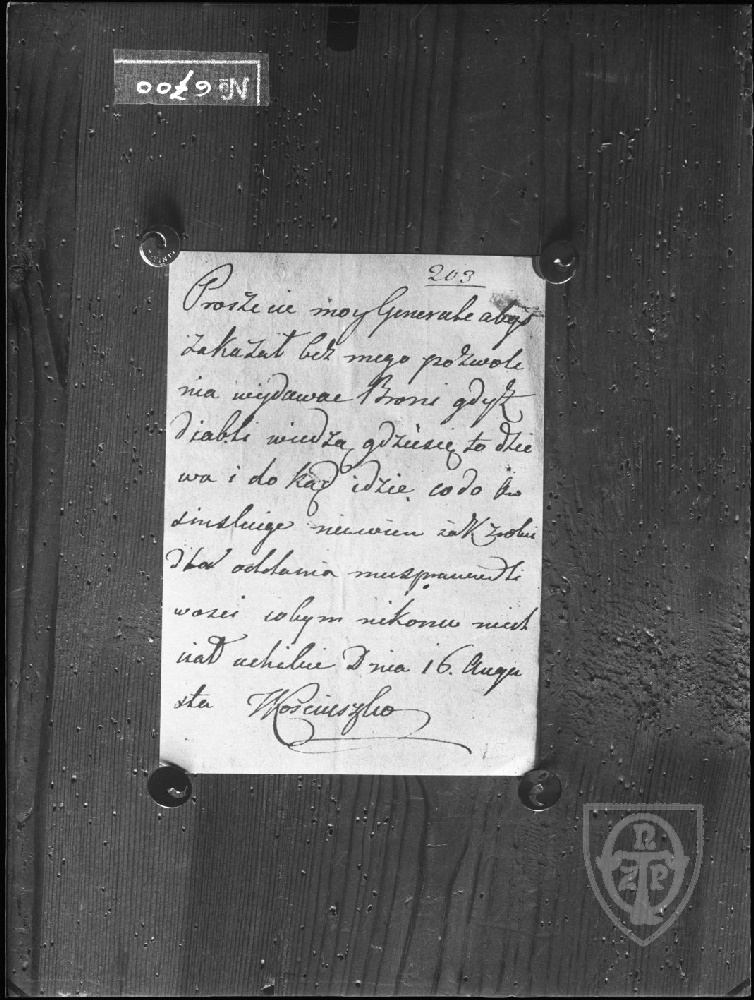 № 6700
203
Proszę cie moy Generale abyś
zakazał bez mego pozwole
nia wydawać Broni gdyż
diabli wiedzą gdzie się to dzie
wa i do kąd idzie co do
niewiem jak zrobić
dla oddania mu sprawiedli
wości cobym nikomu niech
ciał uchibić Dnia 16. Augu
sta TKościuszko
NTZP